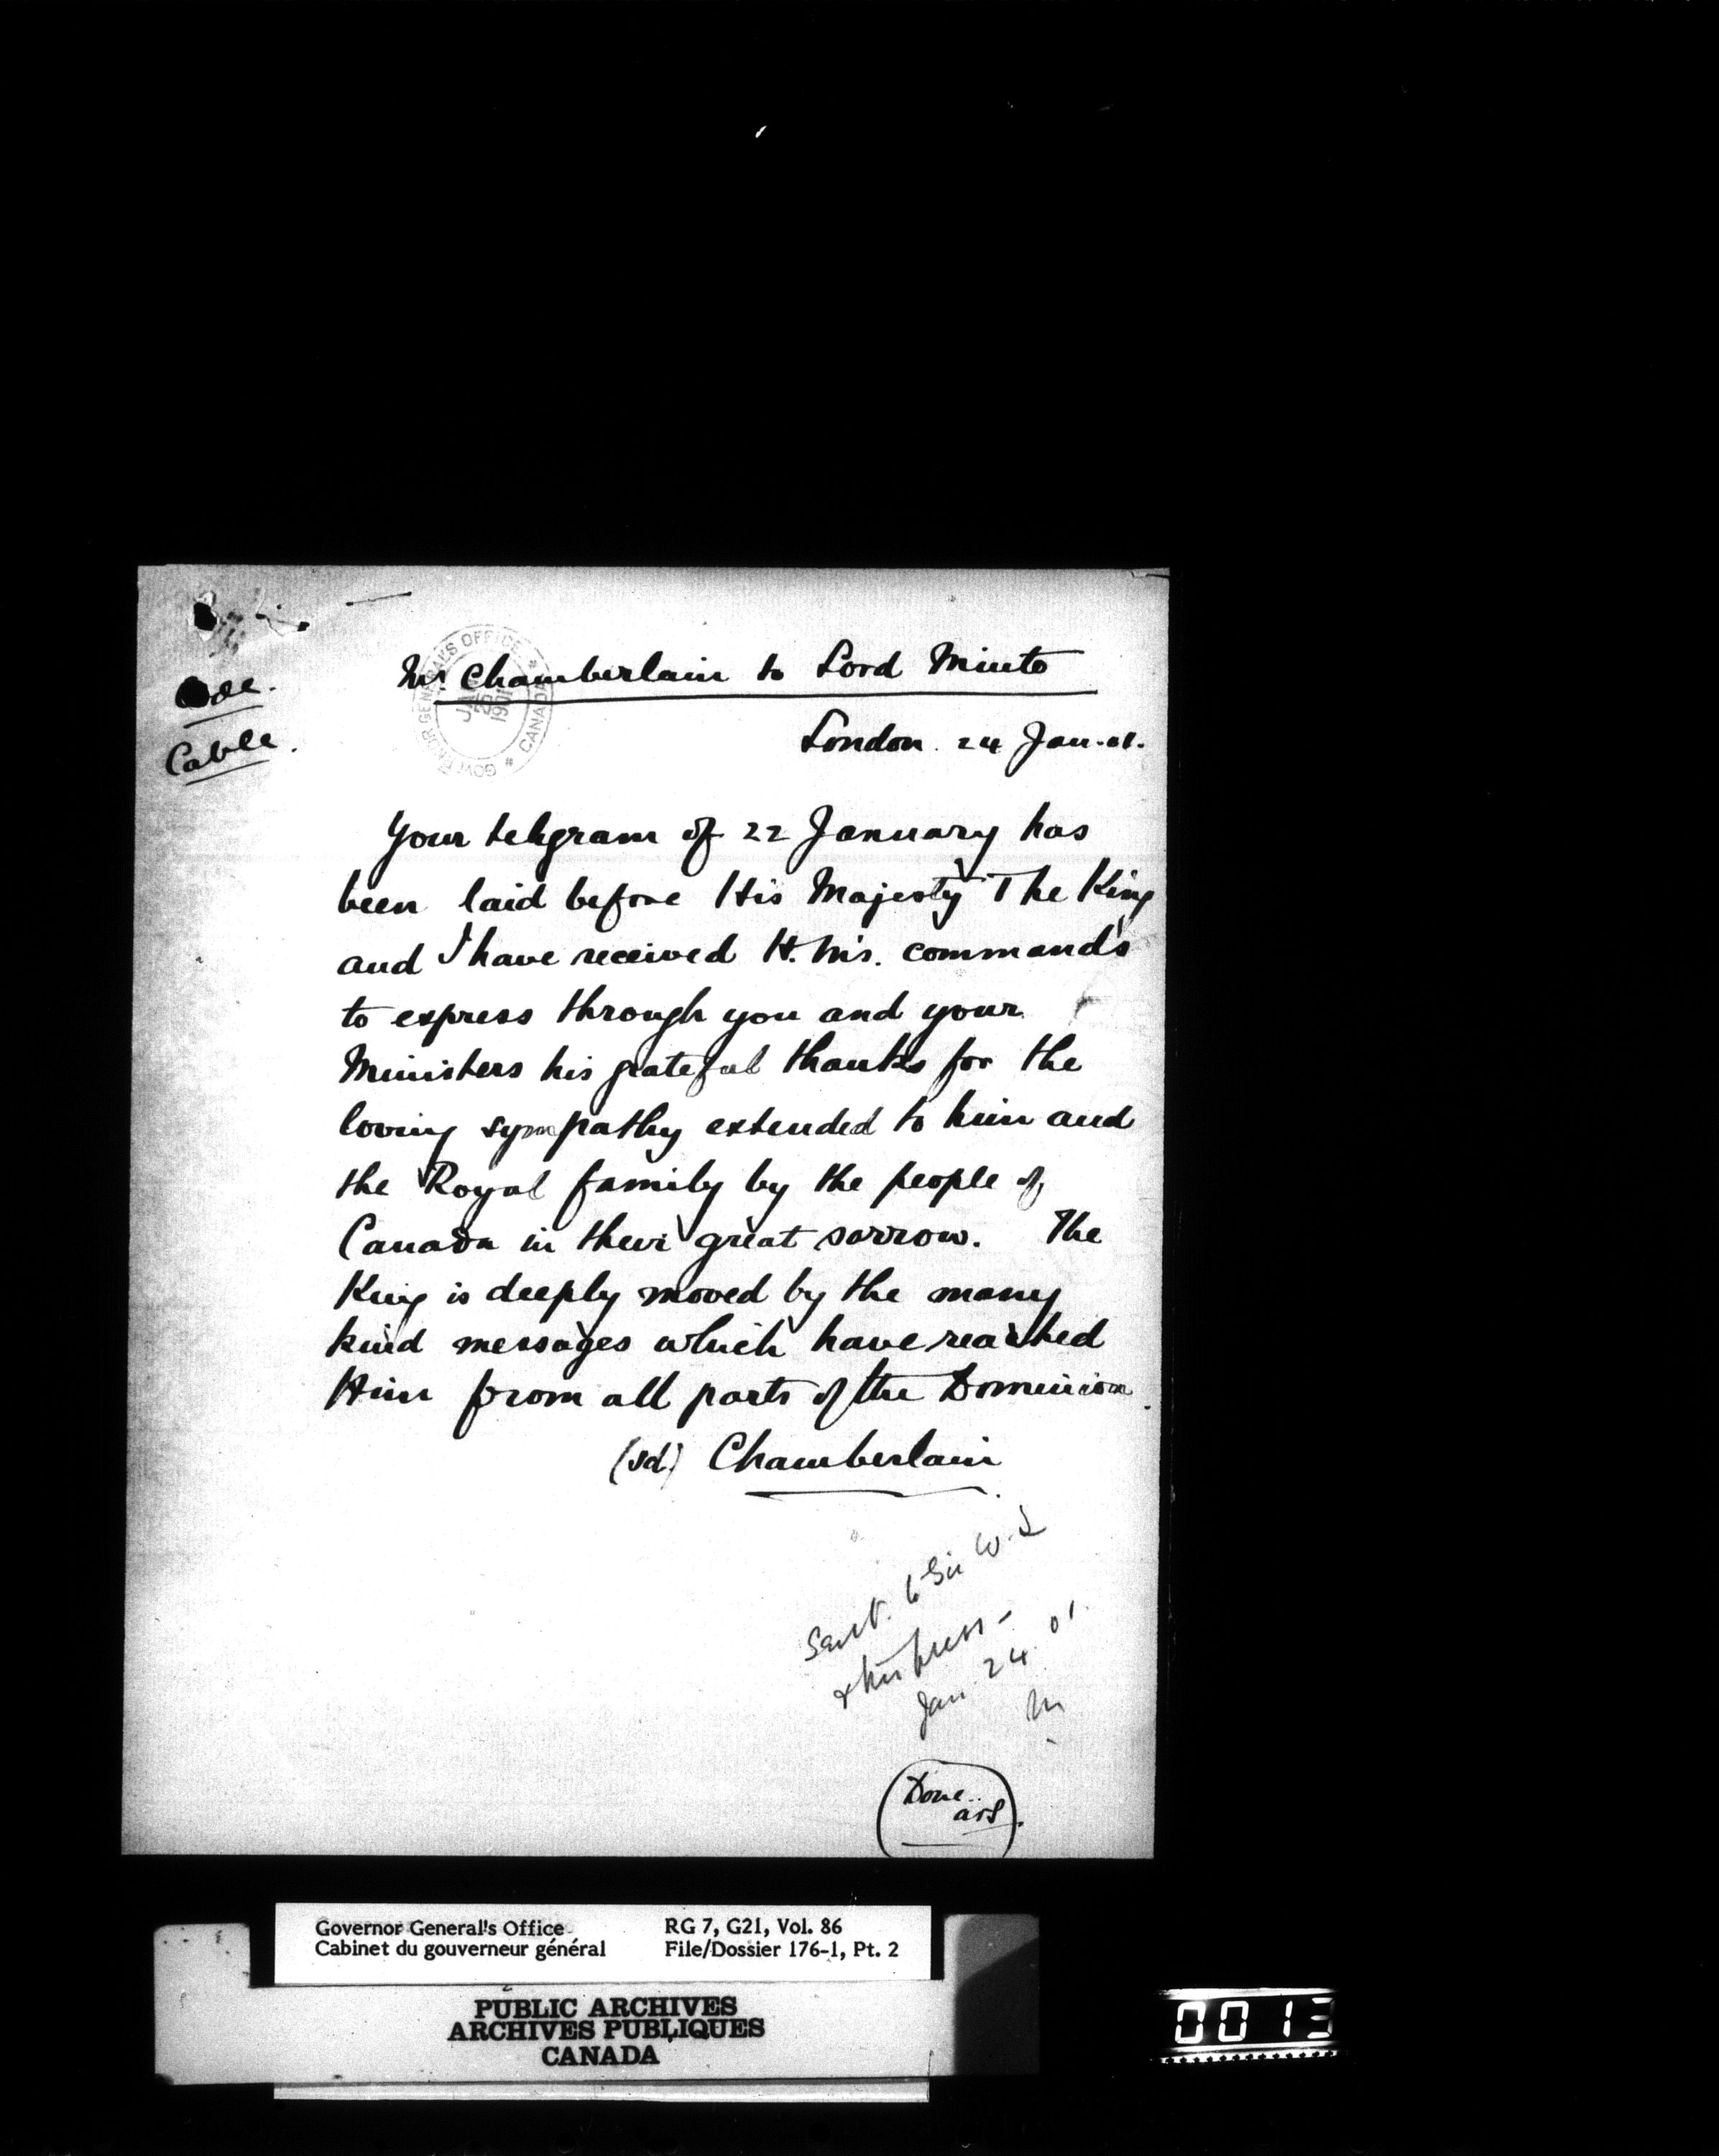 Mr. Chamberlain to Lord Minto
GOVERNOR GENERAL'S OFFICE * CANADA *
JAN
25
1901
Cable.
London. 24 Jan. 01.
Your telegram of 22 January has
been laid before His Majesty The King
and I have received H. M's. commands
to express through you and your
Ministers his grateful thanks for the
loving sympathy extended to him and
the Royal family by the people of
Canada in their great sorrow. The
King is deeply moved by the many
kind messages which have reached
Him from all parts of the Dominion.
(sd) Chamberlain
Sent. to Sir W. L
Jan. 24. 01.
M
Done..
Governor General's Office RG 7, G21, Vol. 86
Cabinet du gouverneur général File/Dossier 176-1, Pt. 2
PUBLIC ARCHIVES
ARCHIVES PUBLIQUES
CANADA
0013